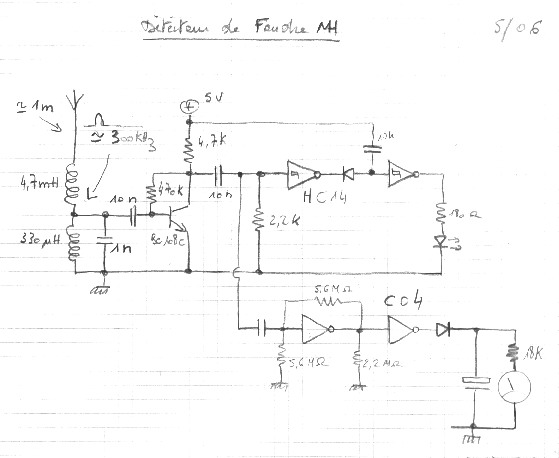 Détecteur de Foudre MH
5/06
≃ 1m
≃ 300kHz
5V
4,7K
10n
4,7mH
10n
470K
10n
HC14
330µH
1n
BC108C
2,2K
180Ω
5,6MΩ
C04
5,6MΩ
2,2MΩ
18K